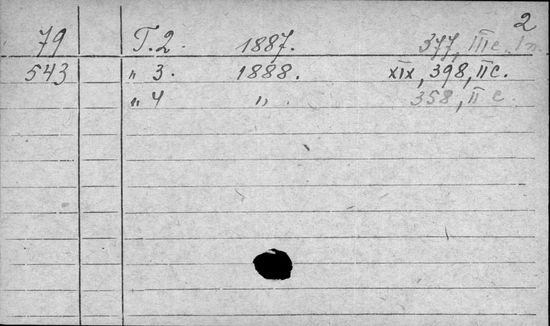 2
79 Т. 2. 1887. 377, IIIс. 1
543 „ 3. 1888. XIX, 398, IIс.
„ 4 „. 358, II с.